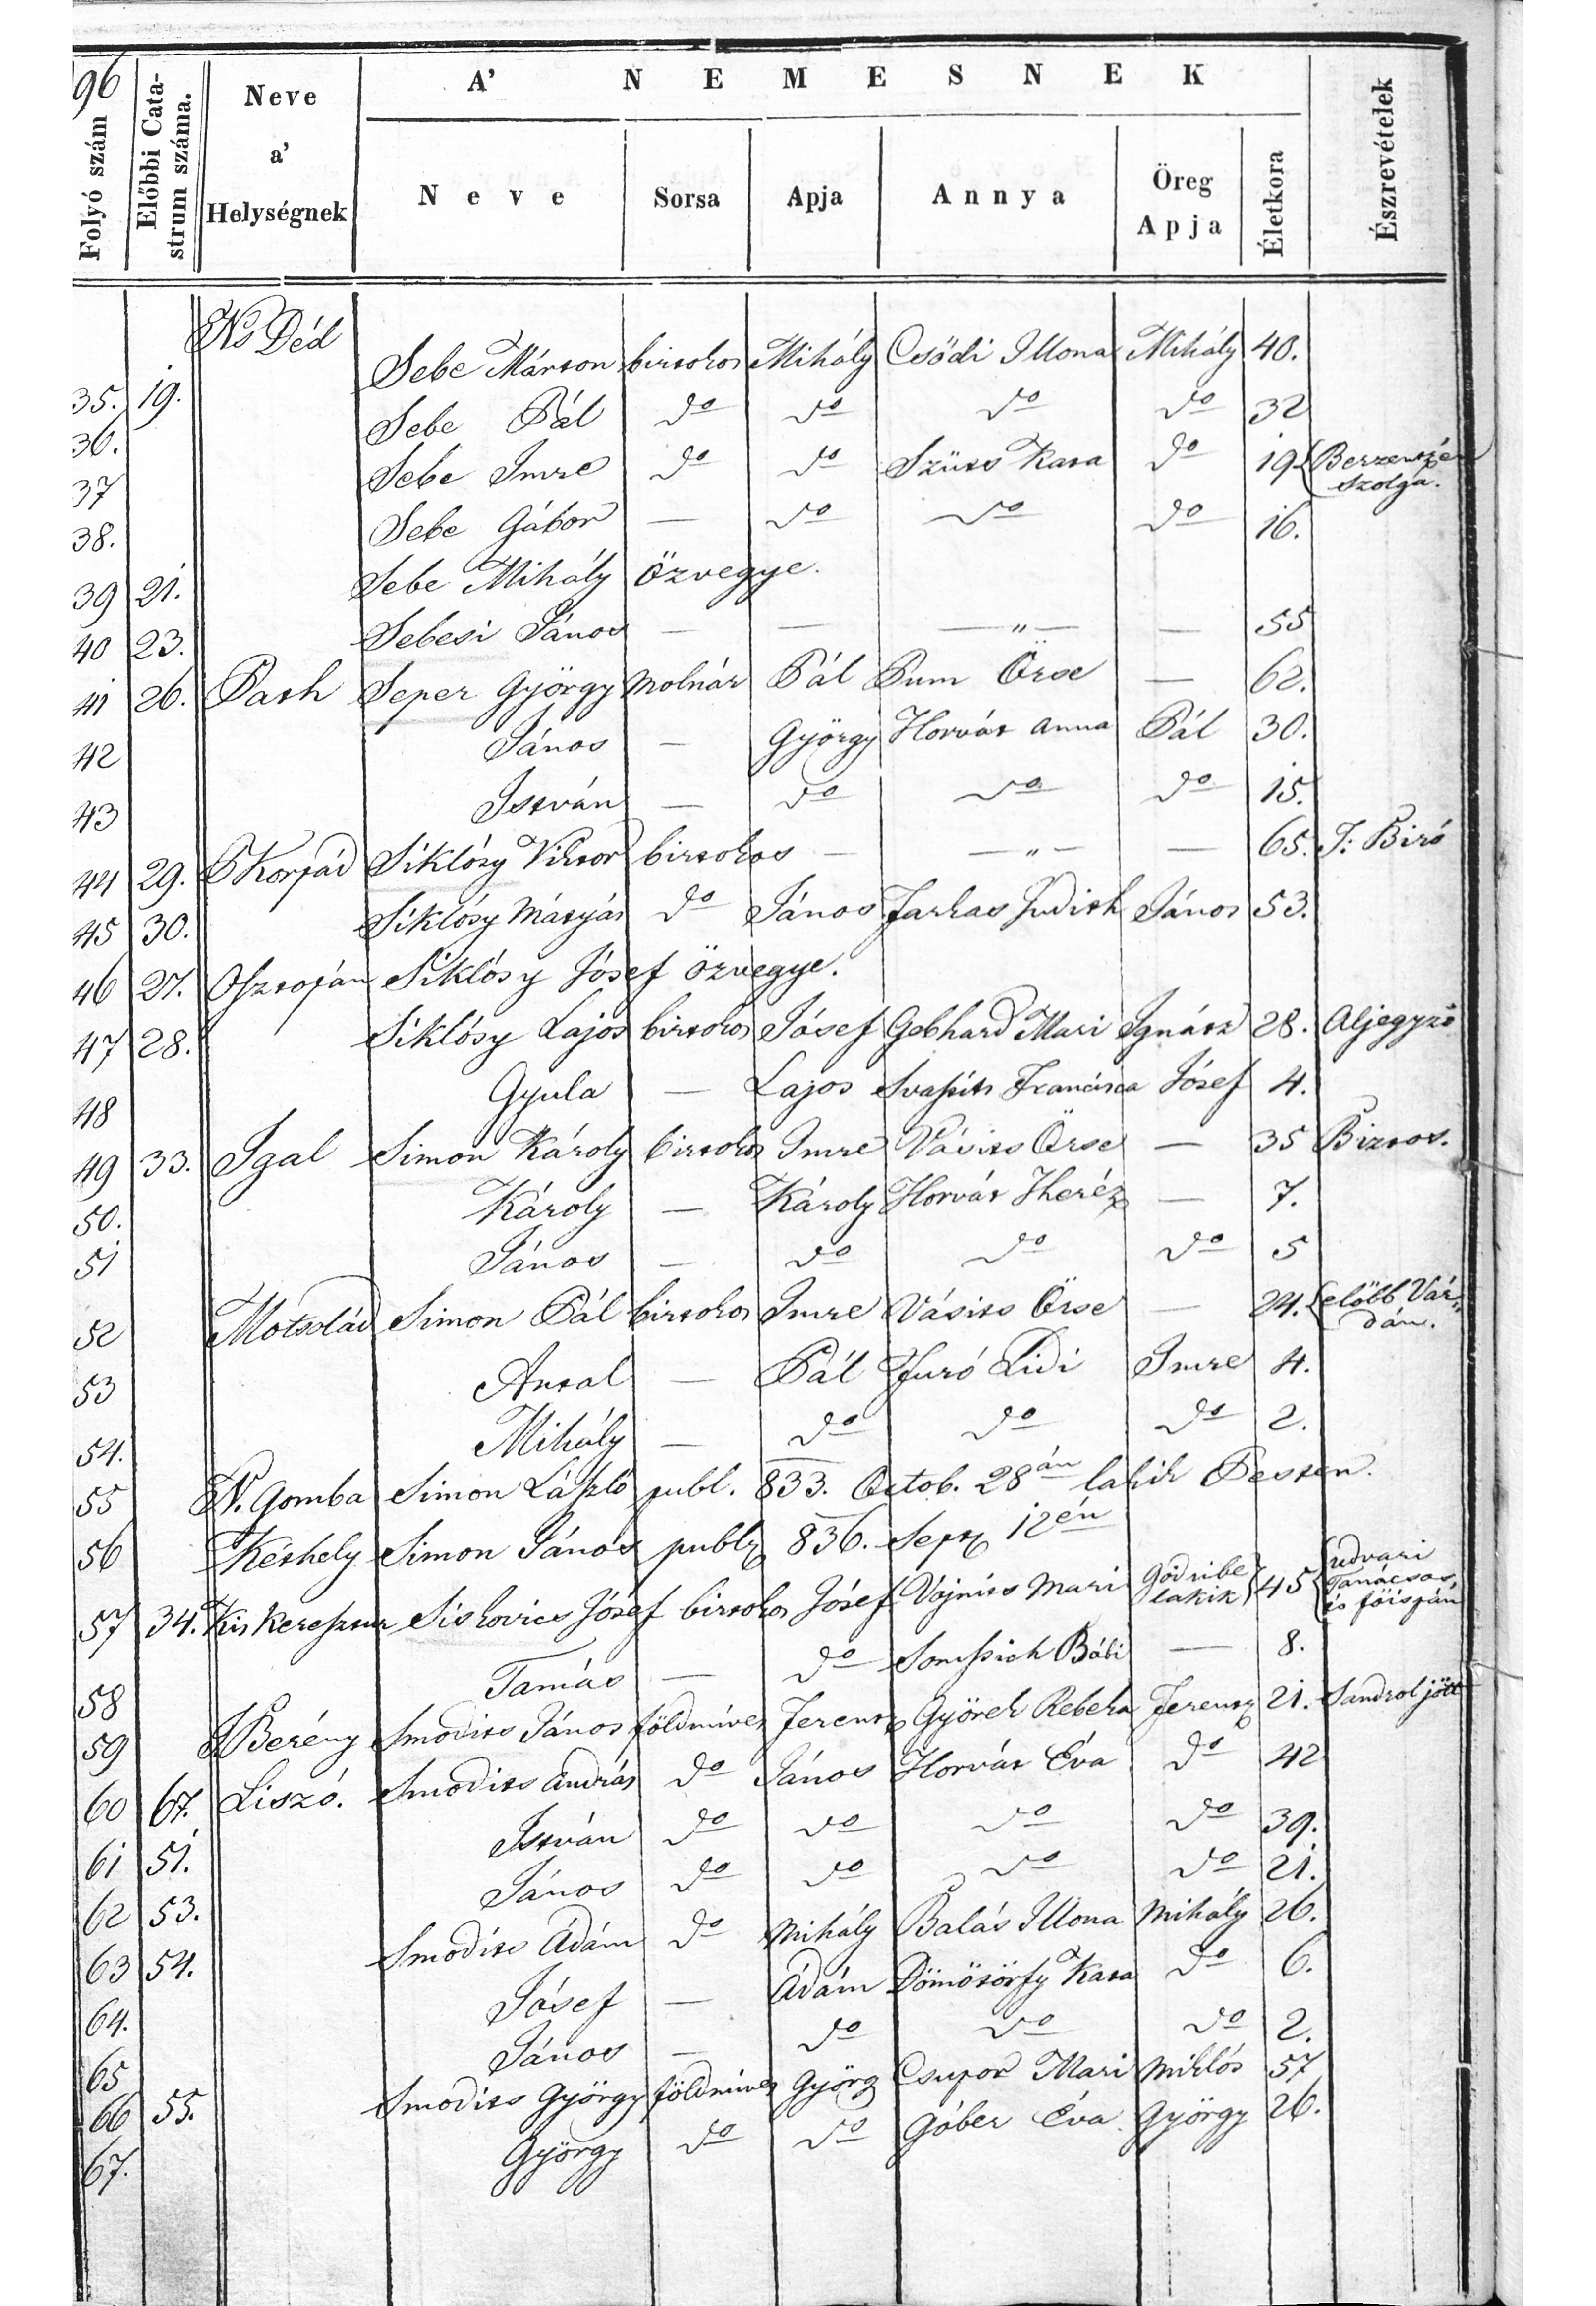 96
A' NEMESNEK
Folyó szám | Előbbi Catastrum száma. | Neve a' Helységnek | Neve | Sorsa | Apja | Annya | Öreg Apja | Életkora | Észrevételek
35. | 19. | Ns Déd | Sebe Márton | birtokos | Mihály | Csődi Illona | Mihály | 40.
36. | Sebe Pál | do | do | do | do | 32
37 | Sebe Imre | do | do | Szüts Kata | do | 19 | szolga.
38. | Sebe Gábor | — | do | do | do | 16.
39 | 21. | Sebe Mihály özvegye.
40 | 23. | Sebesi János | — | — | — " — | — | 55
41 | 26. | Path | Seper György | Molnár | Pál | Pum Örse | — | 62.
42 | János | — | György | Horvát Anna | Pál | 30.
43 | István | — | do | do | do | 15.
44 | 29. | Korpád | Siklósy Viktor | birtokos | — | — " — | — | 65. | T: Biró
45 | 30. | Siklósy Mátyás | do | János | Farkas Judith | János | 53.
46 | 27. | Osztopán | Siklósy Jósef özvegye.
47 | 28. | Siklósy Lajos | birtokos | Jósef | Gebhard Mari | Ignátz | 28. | Aljegyző
48 | Gyula | — | Lajos | Svastits Francisca | Jósef | 4.
49 | 33. | Igal | Simon Károly | birtokos | Imre | Vásits Örse | — | 35 | Biztos.
50. | Károly | — | Károly | Horvát Theréz | — | 7.
51 | János | — | do | do | do | 5
52 | Motsolád | Simon Pál | birtokos | Imre | Vásits Örse | — | 24. | előbb Várdán.
53 | Antal | — | Pál | Furó Lidi | Imre | 4.
54. | Mihály | — | do | do | do | 2.
55 | N. Gomba | Simon László | publ. 833. Octob. 28án lakik Pesten.
56 | Kéthely | Simon János | publ. 836. Sept. 12én
57 | 34. | Kis Keresztur | Siskovics Jósef | birtokos | Jósef | Vojnits Mari | Gödribe lakik | 45 | udvari Tanácsos és főispán
58 | Tamás | — | do | Somssich Bábi | — | 8.
59 | Berény | Smodits János | földmives | Ferentz | Györek Rebeka | Ferentz | 21. | Sandrol jött
60 | 67. | Liszó. | Smodits András | do | János | Horvát Éva | do | 42
61 | 51. | István | do | do | do | do | 39.
62 | 53. | János | do | do | do | do | 21.
63 | 54. | Smodits Ádám | do | Mihály | Balás Illona | Mihály | 26.
64. | Jósef | — | Ádám | Dömötörfy Kata | do | 6.
65 | János | — | do | do | do | 2.
66 | 55. | Smodits György | földmives | György | Csupor Mari | Miklós | 57
67. | György | do | do | Góber Éva | György | 26.